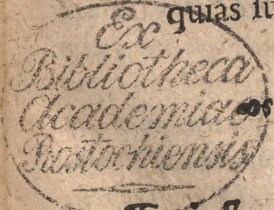 quias
Ex
Bibliotheca
Academiae
Rostochiensis